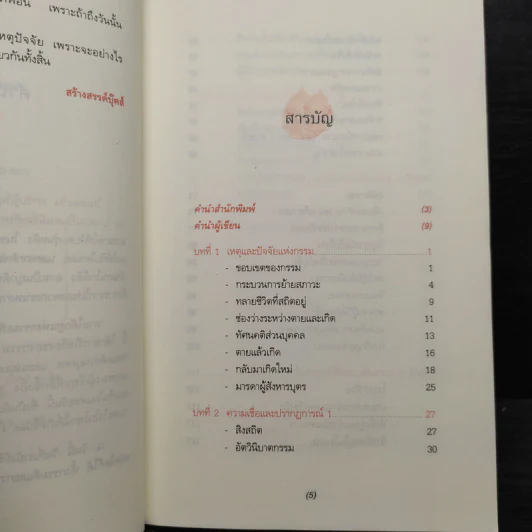 เพราะถ้าถึงวันนั้น
หตุปัจจัย เพราะจะอย่างไร
ยวกันทั้งสิ้น
สร้างสรรค์บุ๊คส์
สารบัญ
คำนำสำนักพิมพ์ (3)
คำนำผู้เขียน (9)
บทที่ 1 เหตุและปัจจัยแห่งกรรม 1
- ขอบเขตของกรรม 1
- กระบวนการย้ายสภาวะ 4
- ทลายชีวิตที่สถิตอยู่ 9
- ช่องว่างระหว่างตายและเกิด 11
- ทัศนคติส่วนบุคคล 13
- ตายแล้วเกิด 16
- กลับมาเกิดใหม่ 18
- มารดาผู้สังหารบุตร 25
บทที่ 2 ความเชื่อและปรากฏการณ์ 1 27
- สิงสถิต 27
- อัตวินิบาตกรรม 30
(5)